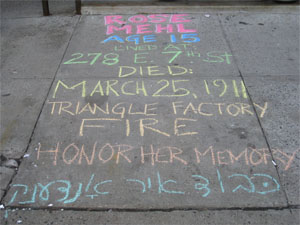 ROSE
MEHL
AGE 15
LIVED AT
278 E. 7th ST
DIED:
MARCH 25, 1911
TRIANGLE FACTORY
FIRE
HONOR HER MEMORY
כּבוד איר אָנדענק